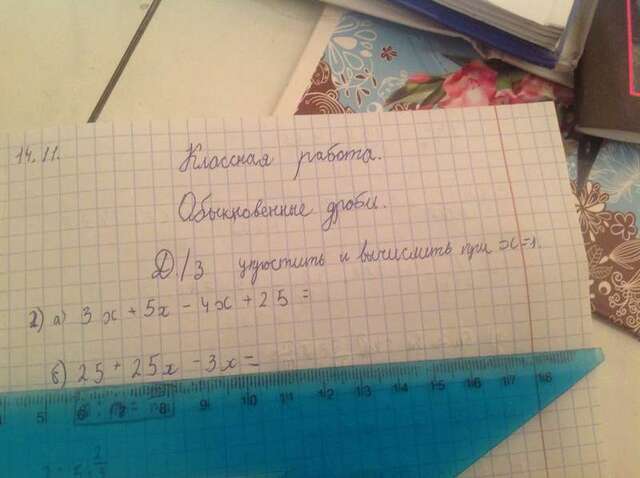 14.11.
Классная работа.
Обыкновенные дроби.
Д/З упростить и вычислить при x=1.
2) а) 3x + 5x - 4x + 25 =
б) 25 + 25x - 3x =
5 6 7 8 9 10 11 12 13 14 15 16 17 18